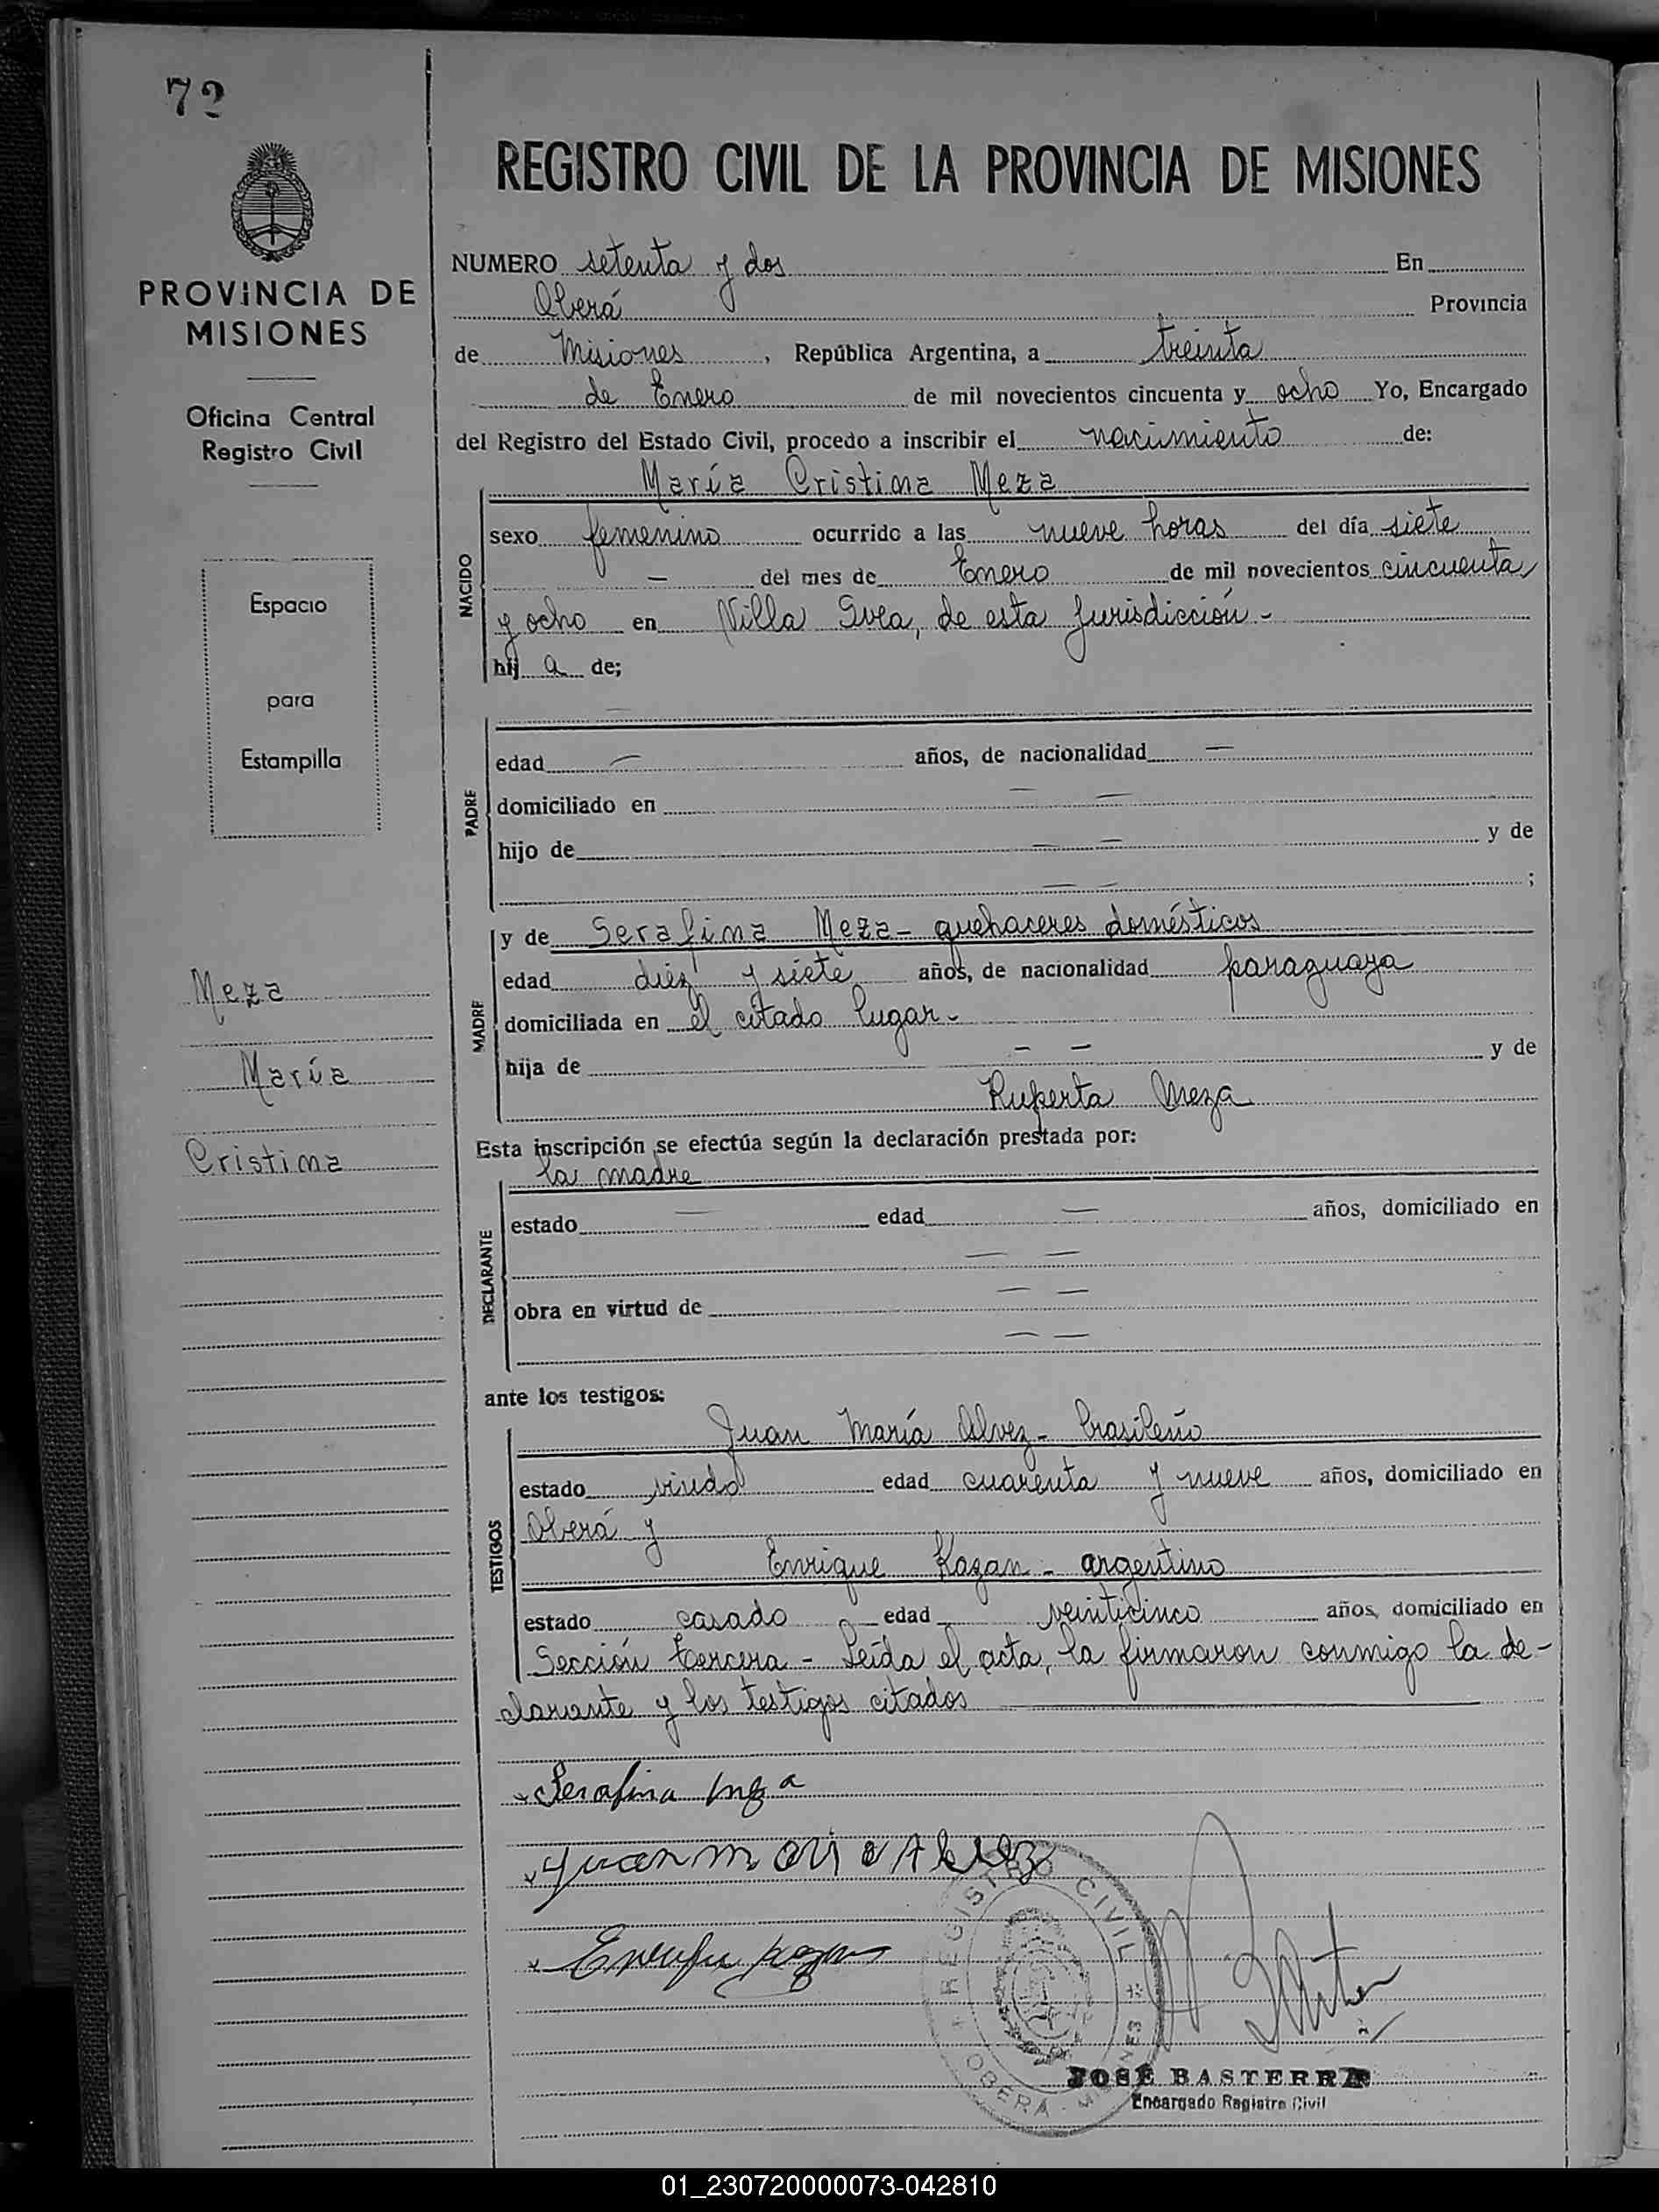 72
PROVINCIA DE
MISIONES
Oficina Central
Registro Civil
Espacio
para
Estampilla
Meza
María
Cristina
REGISTRO CIVIL DE LA PROVINCIA DE MISIONES
NUMERO setenta y dos En
Oberá Provincia
de Misiones, República Argentina, a treinta
de Enero de mil novecientos cincuenta y ocho Yo, Encargado
del Registro del Estado Civil, procedo a inscribir el nacimiento de:
María Cristina Meza
NACIDO
sexo femenino ocurrido a las nueve horas del día siete
— del mes de Enero de mil novecientos cincuenta
y ocho en Villa Svea, de esta Jurisdicción -
hij a de;
PADRE
—
edad — años, de nacionalidad —
domiciliado en — —
hijo de — — y de
— — ;
MADRE
y de Serafina Meza - quehaceres domésticos
edad diez y siete años, de nacionalidad paraguaya
domiciliada en el citado lugar -
hija de — — y de
Ruperta Meza
Esta inscripción se efectúa según la declaración prestada por:
la madre
DECLARANTE
estado — edad — años, domiciliado en
— —
obra en virtud de — —
— —
ante los testigos:
TESTIGOS
Juan María Alvez - brasileño
estado viudo edad cuarenta y nueve años, domiciliado en
Oberá y
Enrique Kazan - argentino
estado casado edad veinticinco años, domiciliado en
Sección tercera - Leída el acta, la firmaron conmigo la de-
clarante y los testigos citados
Serafina
Juan
REGISTRO CIVIL
OBERA - MISIONES
JOSÉ BASTERRA
Encargado Registro Civil
01_230720000073-042810